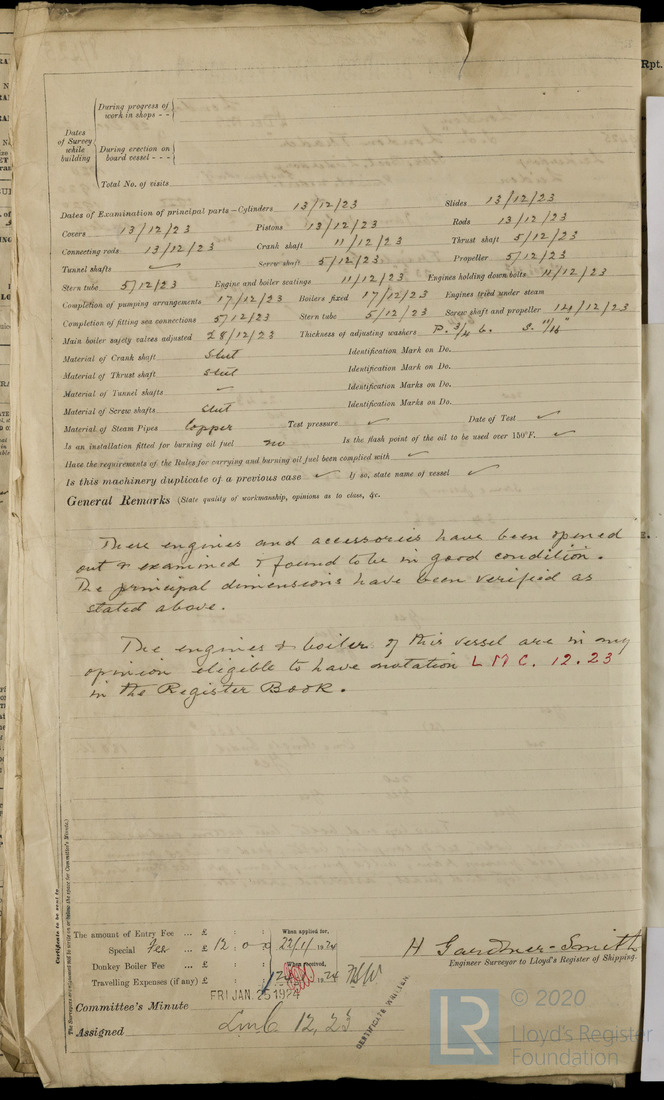 Rpt.
During progress of work in shops - -
Dates of Survey while building
During erection on board vessel - - -
Total No. of visits
Dates of Examination of principal parts—Cylinders 13/12/23 Slides 13/12/23
Covers 13/12/23 Pistons 13/12/23 Rods 13/12/23
Connecting rods 13/12/23 Crank shaft 11/12/23 Thrust shaft 5/12/23
Tunnel shafts ✓ Screw shaft 5/12/23 Propeller 5/12/23
Stern tube 5/12/23 Engine and boiler seatings 11/12/23 Engines holding down bolts 11/12/23
Completion of pumping arrangements 17/12/23 Boilers fixed 17/12/23 Engines tried under steam
Completion of fitting sea connections 5/12/23 Stern tube 5/12/23 Screw shaft and propeller 14/12/23
Main boiler safety valves adjusted 28/12/23 Thickness of adjusting washers P. 3/4 S. 11/16"
Material of Crank shaft Steel Identification Mark on Do.
Material of Thrust shaft steel Identification Mark on Do.
Material of Tunnel shafts ✓ Identification Marks on Do.
Material of Screw shafts steel Identification Marks on Do.
Material of Steam Pipes Copper Test pressure ✓ Date of Test ✓
Is an installation fitted for burning oil fuel no Is the flash point of the oil to be used over 150°F. ✓
Have the requirements of the Rules for carrying and burning oil fuel been complied with ✓
Is this machinery duplicate of a previous case ✓ If so, state name of vessel ✓
General Remarks (State quality of workmanship, opinions as to class, &c.
These engines and accessories have been opened
out & examined & found to be in good condition.
The principal dimensions have been verified as
stated above.
The engines & boiler of this vessel are in my
opinion eligible to have notation L M C. 12. 23
in the Register Book.
Certificate to be sent to
The Surveyors are requested not to write on or below the space for Committee's Minute.
The amount of Entry Fee ... £ : : When applied for,
Special Fee ... £ 12 : 0 22/1/1924
Donkey Boiler Fee ... £ : : When received,
Travelling Expenses (if any) £ : : 24
FRI JAN. 25 1924
Committee's Minute
Assigned LMC 12, 23
CERTIFICATE WRITTEN
H Gardner-Smith
Engineer Surveyor to Lloyd's Register of Shipping.
LR © 2020
Lloyd's Register
Foundation